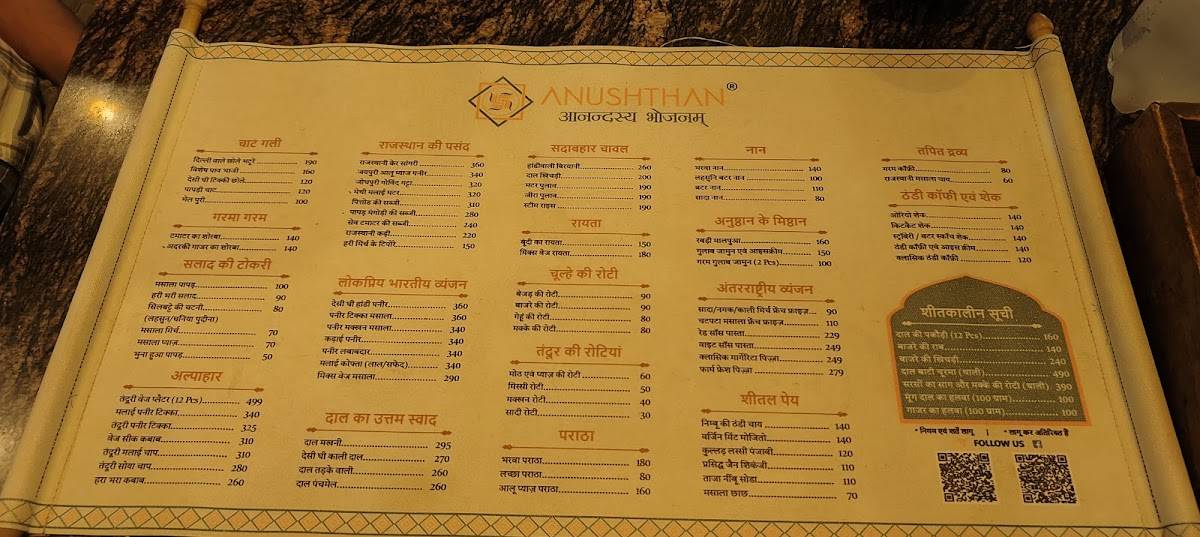 ANUSHTHAN®
आनन्दस्य भोजनम्
चाट गली
दिल्ली वाले छोले भटूरे 190
विशेष पाव भाजी 160
देसी घी टिक्की छोले 120
पापड़ी चाट 120
भेल पुरी 100
गरमा गरम
टमाटर का शोरबा 140
अदरकी गाजर का शोरबा 140
सलाद की टोकरी
मसाला पापड़ 100
हरी भरी सलाद 90
सिलबट्टे की चटनी 80
(लहसुन/धनिया पुदीना)
मसाला मिर्च 70
मसाला प्याज़ 70
भुना हुआ पापड़ 50
अल्पाहार
तंदूरी वेज प्लैटर (12 Pcs) 499
मलाई पनीर टिक्का 340
तंदूरी पनीर टिक्का 325
वेज सीक कबाब 310
तंदूरी मलाई चाप 310
तंदूरी सोया चाप 280
हरा भरा कबाब 260
राजस्थान की पसंद
राजस्थानी केर सांगरी 360
जयपुरी आलू प्याज पनीर 340
जोधपुरी गोविन्द गट्टा 320
मेथी मलाई मटर 320
पित्तोड की सब्जी 310
पापड़ मंगोड़ी की सब्जी 280
सेव टमाटर की सब्जी 240
राजस्थानी कढ़ी 220
हरी मिर्च के टिपोरे 150
लोकप्रिय भारतीय व्यंजन
देसी घी हांडी पनीर 360
पनीर टिक्का मसाला 360
पनीर मक्खन मसाला 340
कड़ाई पनीर 340
पनीर लबाबदार 340
मलाई कोफ्ता (लाल/सफेद) 340
मिक्स वेज मसाला 290
दाल का उत्तम स्वाद
दाल मखनी 295
देसी घी काली दाल 270
दाल तड़के वाली 260
दाल पंचमेल 260
सदाबहार चावल
हांडीवाली बिरयानी 260
दाल खिचड़ी 200
मटर पुलाव 190
जीरा पुलाव 190
स्टीम राइस 190
रायता
बूंदी का रायता 150
मिक्स वेज रायता 180
चूल्हे की रोटी
बेजड़ की रोटी 90
बाजरे की रोटी 90
गेहूं की रोटी 80
मक्के की रोटी 80
तंदूर की रोटियां
मोठ एवं प्याज़ की रोटी 60
मिस्सी रोटी 50
मक्खन रोटी 40
सादी रोटी 30
पराठा
भरवा पराठा 180
लच्छा पराठा 80
आलू प्याज़ पराठा 160
नान
भरवा नान 140
लहसुनि बटर नान 100
बटर नान 110
सादा नान 80
अनुष्ठान के मिष्ठान
रबड़ी मालपुआ 160
गुलाब जामुन एवं आइसक्रीम 150
गरम गुलाब जामुन (2 Pcs) 100
अंतरराष्ट्रीय व्यंजन
सादा/नमक/काली मिर्च फ्रेंच फ्राइज़ 90
चटपटा मसाला फ्रेंच फ्राइज़ 110
रेड सॉस पास्ता 229
वाइट सॉस पास्ता 249
क्लासिक मार्गेरिटा पिज़्ज़ा 249
फार्म फ्रेश पिज़्ज़ा 279
शीतल पेय
निम्बू की ठंडी चाय 140
वर्जिन मिंट मोजितो 140
कुल्लड़ लस्सी पंजाबी 120
प्रसिद्ध जैन शिकंजी 110
ताजा नींबू सोडा 110
मसाला छाछ 70
तपित द्रव्य
गरम कॉफ़ी 80
राजस्थानी मसाला चाय 60
ठंडी कॉफी एवं शेक
ओरियो शेक 140
किटकैट शेक 140
स्ट्रॉबेरी / बटर स्कॉच शेक 140
ठंडी कॉफ़ी एवं आइस क्रीम 140
क्लासिक ठंडी कॉफ़ी 120
शीतकालीन सूची
दाल की पकोड़ी (12 Pcs) 160
बाजरे की राब 140
बाजरे की खिचड़ी 240
दाल बाटी चूरमा (थाली) 490
सरसों का साग और मक्के की रोटी (थाली) 390
मूंग दाल का हलवा (100 ग्राम) 100
गाजर का हलवा (100 ग्राम) 100
* नियम एवं शर्तें लागू | * लागू कर अतिरिक्त हैं
FOLLOW US